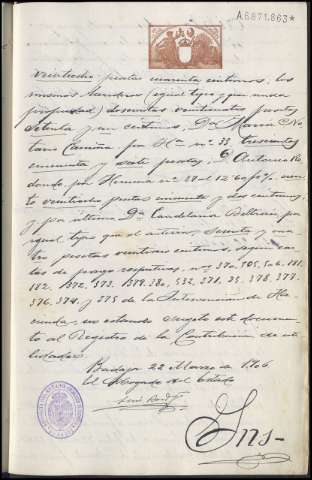 A.6871.863*
veintiocho pesetas cuarenta céntimos, los
mismos Sandros (igual tipo y que nuda
propiedad) doscientas veintinueve pesetas
setenta y un céntimos, Dª María No
por Hª nº 33. trescientas
cincuenta y siete pesetas, Dª Antonia Re
dondo, por Herencia nº
to veintiocho pesetas y dos céntimos,
y por último Dª Candelaria Beltrán, por
igual tipo que el anterior, sesenta y una
pesetas veintinueve céntimos, según car-
tas de pago respectivas, nos 370, 105, 106, 181,
182, 372, 373, 379, 380, 532, 371, 35, 378, 377,
376, 374, y 375 de la Intervención de Ha-
cienda, no estando sujeto este documen
to al Registro de la Contribución de uti
lidades.
Badajoz 22 Marzo de 1906
El Abogado del Estado
Ins-